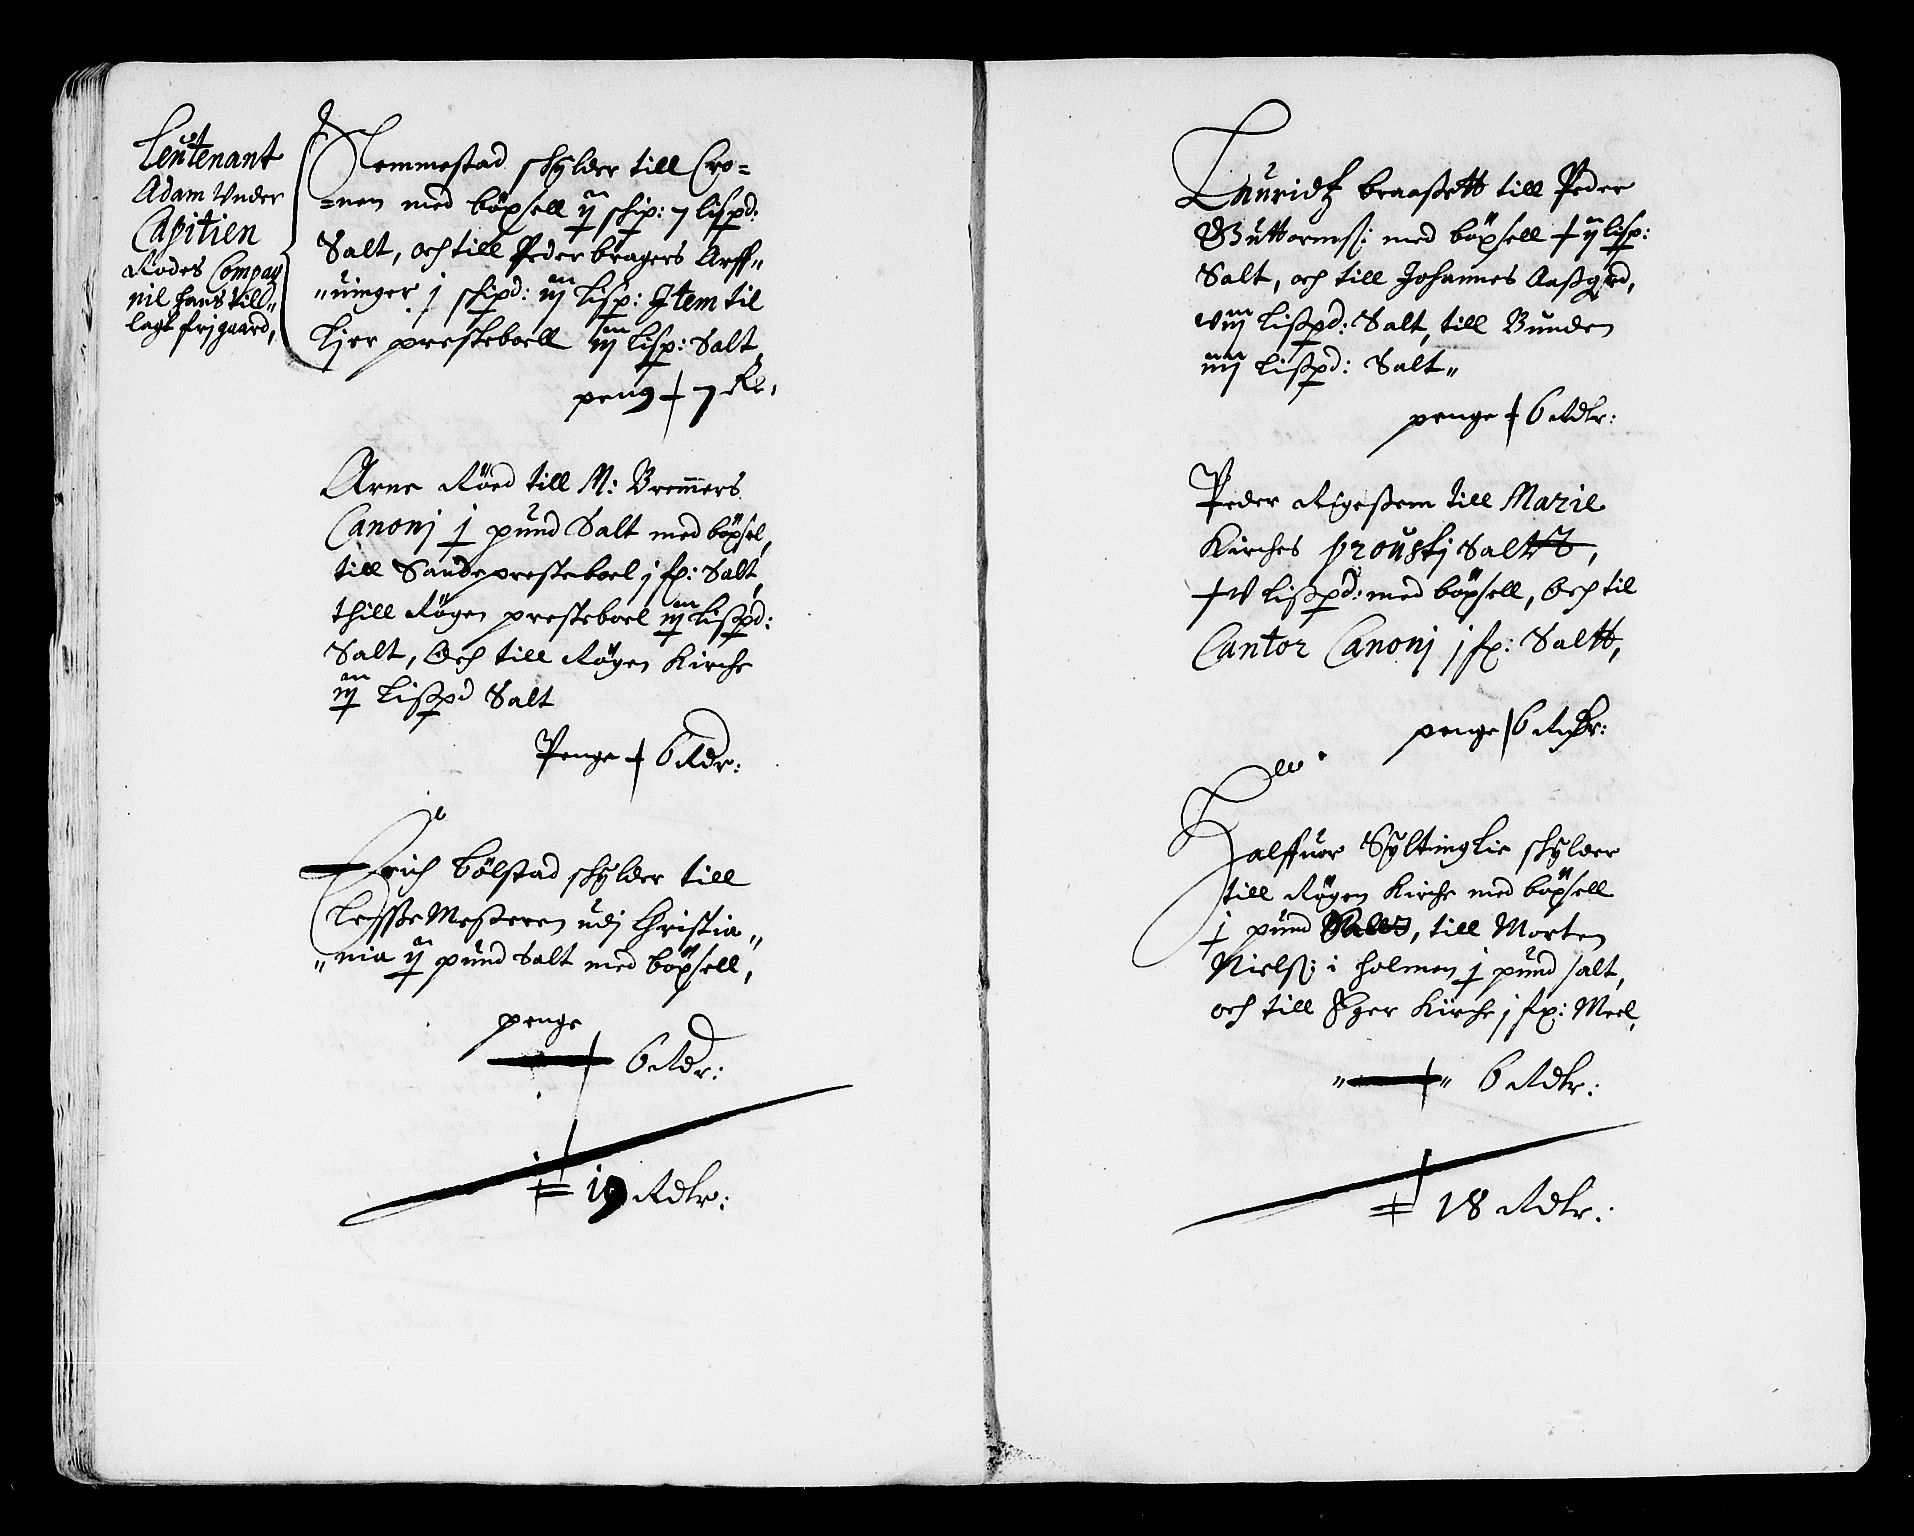 Leutenant
Adam Under
Capitien
Rodes Compag
nil hans till„
lagt frj gaard,
Slemmestad schylder till Cro=
=nen med böxsell ij schip: 7 lispd:
Salt, och till Peder bragers Arff„
„uinger j schipd: iij Lisp: Item til
Lier presteboell iij Lisp: Salt
peng 7 Rr.
Arne Röed till M: Bremmers
Canonj j pund Salt med böxsel,
till Sande presteboel j fx: Salt,
thill Rögen presteboel iij Lisspd:
Salt, Och till Rögen Kirche
iij Lisspd Salt
Penge 6 Rdr:
Erich bölstad schylder till
Lesse Mesteren udj Christia„
„nia ij pund Salt med böxsell,
penge
6 Rdr:
19 Rdlr:
Lauridtz braasett till Peder
Guttormss: med böxsell ij lisp:
Salt, och till Johannes Aassgrd,
viij Lisspd: Salt, till Bunden
iiij Lisspd: Salt„
penge 6 Rdlr:
Peder Rigessem till Marie
Kirches proustj Saltt,
v Lisspd: med böxsell, Och til
Cantor Canonj j fx: Saltt,
penge 6 Rdlr:
Halffuor Gyltinglie schylder
till Rögen Kirche med böxsell
j pund, till Morten
Nielss: i holmen j pund salt,
och till Eger Kirche j fx: Meel,
„ „ 6 Rdlr:
18 Rdlr: